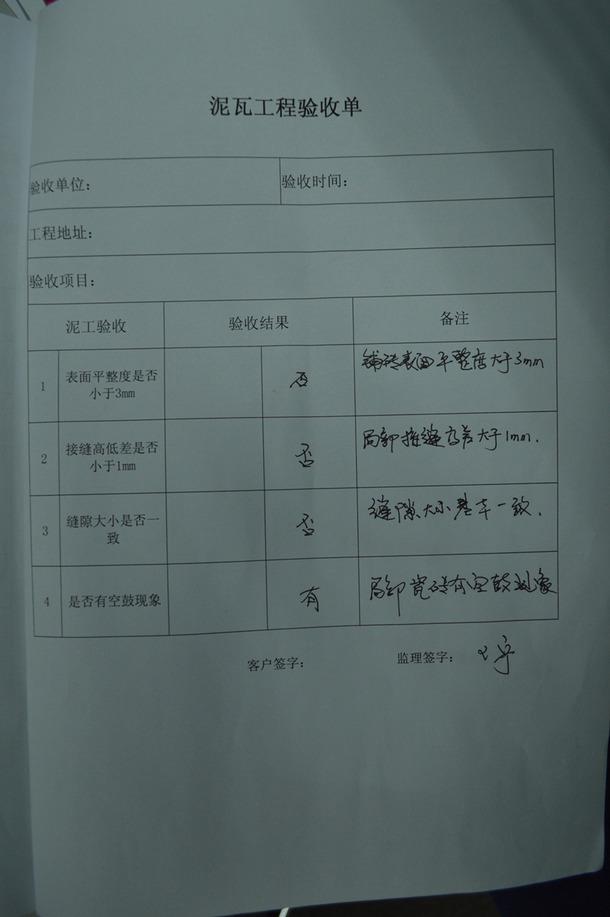 泥瓦工程验收单
验收单位： 验收时间：
工程地址：
验收项目：
泥工验收 验收结果 备注
1 表面平整度是否 否 铺砖表面平整度大于3mm
小于3mm
2 接缝高低差是否 否 局部接缝高差大于1mm.
小于1mm
3 缝隙大小是否一 否 缝隙大小基本一致.
致
4 是否有空鼓现象 有 局部瓷砖有空鼓现象
客户签字： 监理签字：